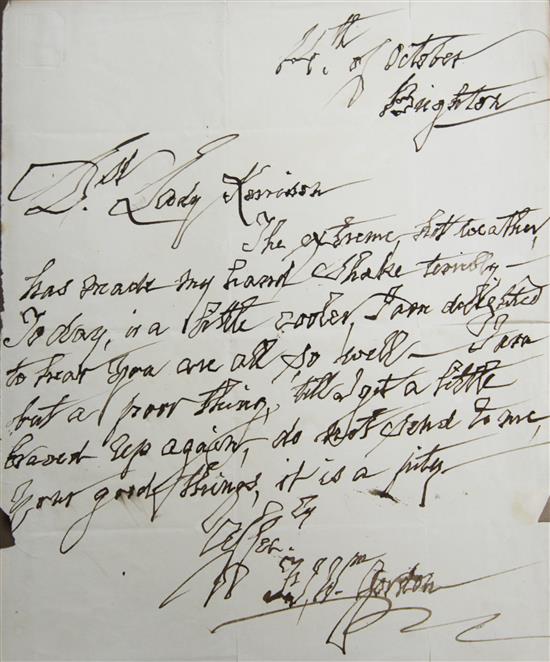 4th. of October
Brighton
Dst Lady Kerrison
The extreme, hot weather,
has made my hand shake terribly –
To day, is a little cooler, I am delighted
to hear you are all, so well – I am
but a poor thing, till I get a little
braced up again, do not send to me,
your good things, it is a pity
Gordon